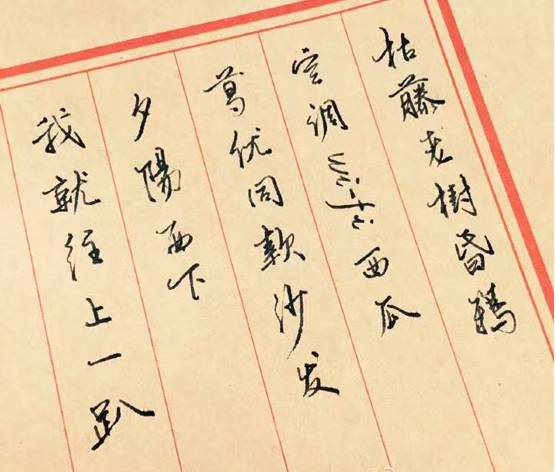 枯藤老樹昏鴉
空调wifi西瓜
葛优同款沙发
夕陽西下
我就往上一趴